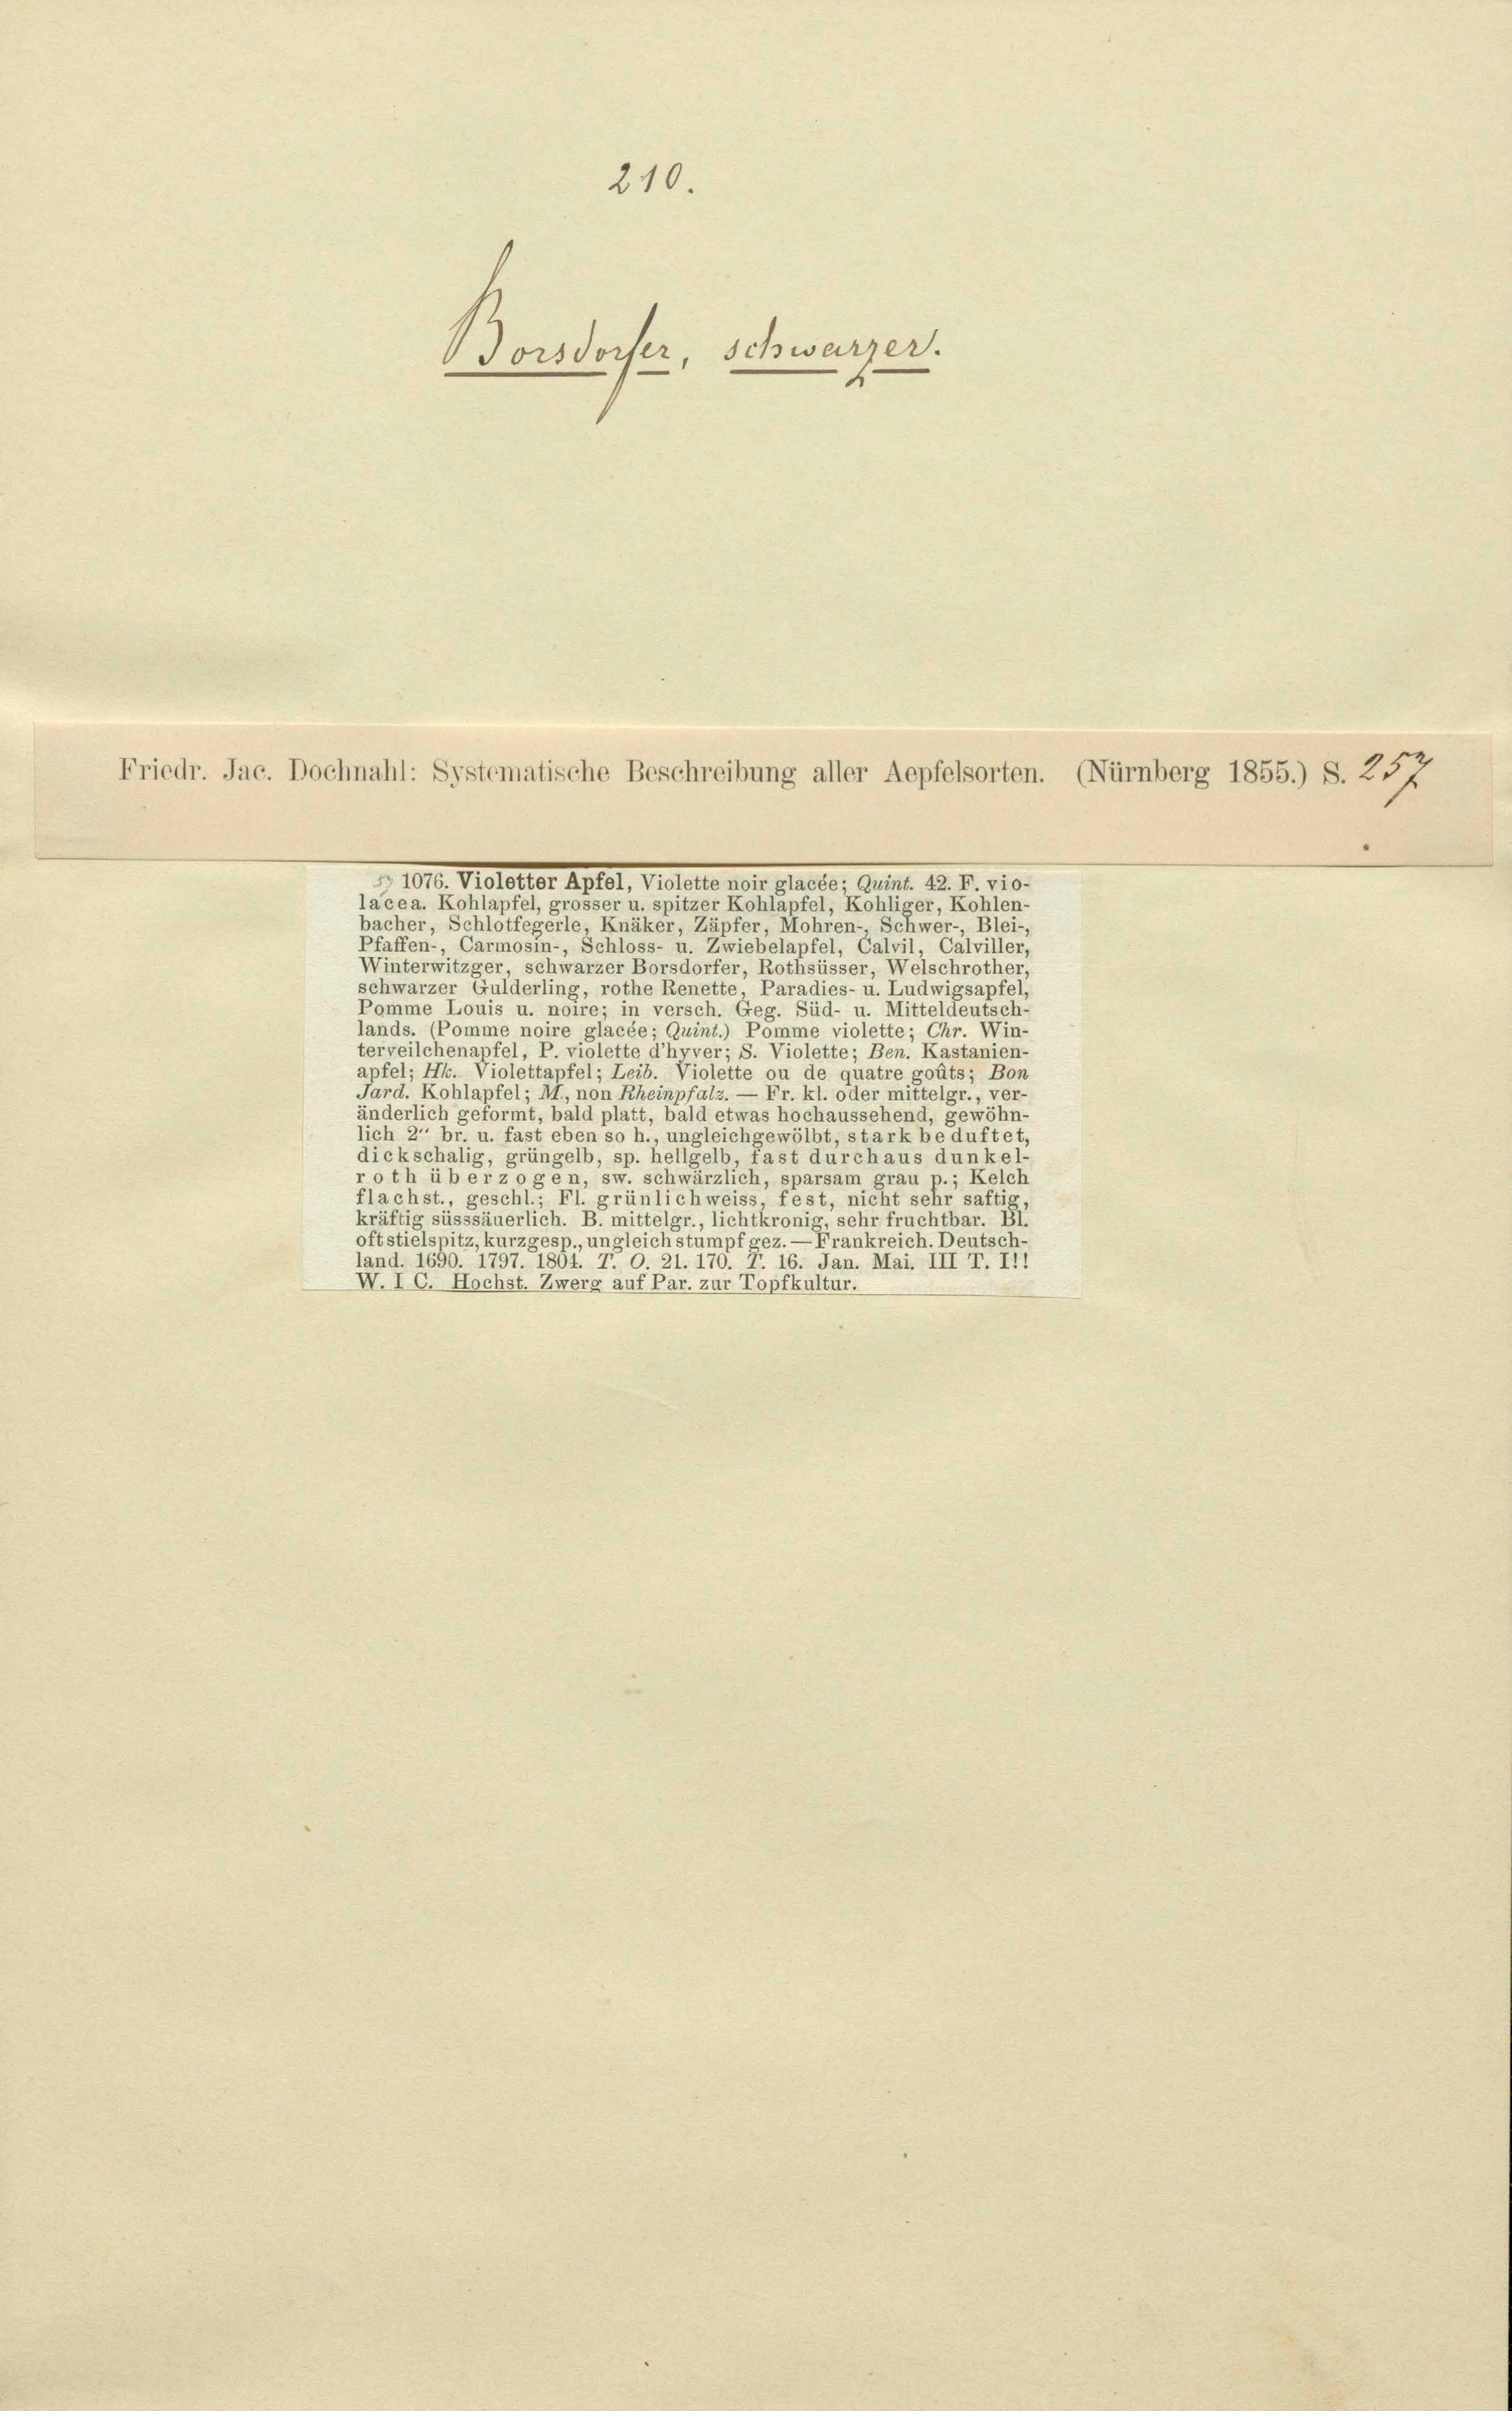 210.
Borsdorfer, schwarzer.
Friedr. Jac. Dochnahl: Systematische Beschreibung aller Aepfelsorten. (Nürnberg 1855.) S. 257
1076. Violetter Apfel, Violette noir glacée; Quint. 42. F. vio-
lacea. Kohlapfel, grosser u. spitzer Kohlapfel, Kohliger, Kohlen-
bacher, Schlotfegerle, Knäker, Zäpfer, Mohren-, Schwer-, Blei-,
Pfaffen-, Carmosin-, Schloss- u. Zwiebelapfel, Calvil, Calviller,
Winterwitzger, schwarzer Borsdorfer, Rothsüsser, Welschrother,
schwarzer Gulderling, rothe Renette, Paradies- u. Ludwigsapfel,
Pomme Louis u. noire; in versch. Geg. Süd- u. Mitteldeutsch-
lands. (Pomme noire glacée; Quint.) Pomme violette; Chr. Win-
terveilchenapfel, P. violette d'hyver; S. Violette; Ben. Kastanien-
apfel; Hk. Violettapfel; Leib. Violette ou de quatre goûts; Bon
Jard. Kohlapfel; M., non Rheinpfalz. — Fr. kl. oder mittelgr., ver-
änderlich geformt, bald platt, bald etwas hochaussehend, gewöhn-
lich 2" br. u. fast eben so h., ungleichgewölbt, stark beduftet,
dickschalig, grüngelb, sp. hellgelb, fast durchaus dunkel-
roth überzogen, sw. schwärzlich, sparsam grau p.; Kelch
flachst., geschl.; Fl. grünlichweiss, fest, nicht sehr saftig,
kräftig süsssäuerlich. B. mittelgr., lichtkronig, sehr fruchtbar. Bl.
oft stielspitz, kurzgesp., ungleich stumpf gez. — Frankreich. Deutsch-
land. 1690. 1797. 1804. T. O. 21. 170. T. 16. Jan. Mai. III T. I!!
W. I C. Hochst. Zwerg auf Par. zur Topfkultur.